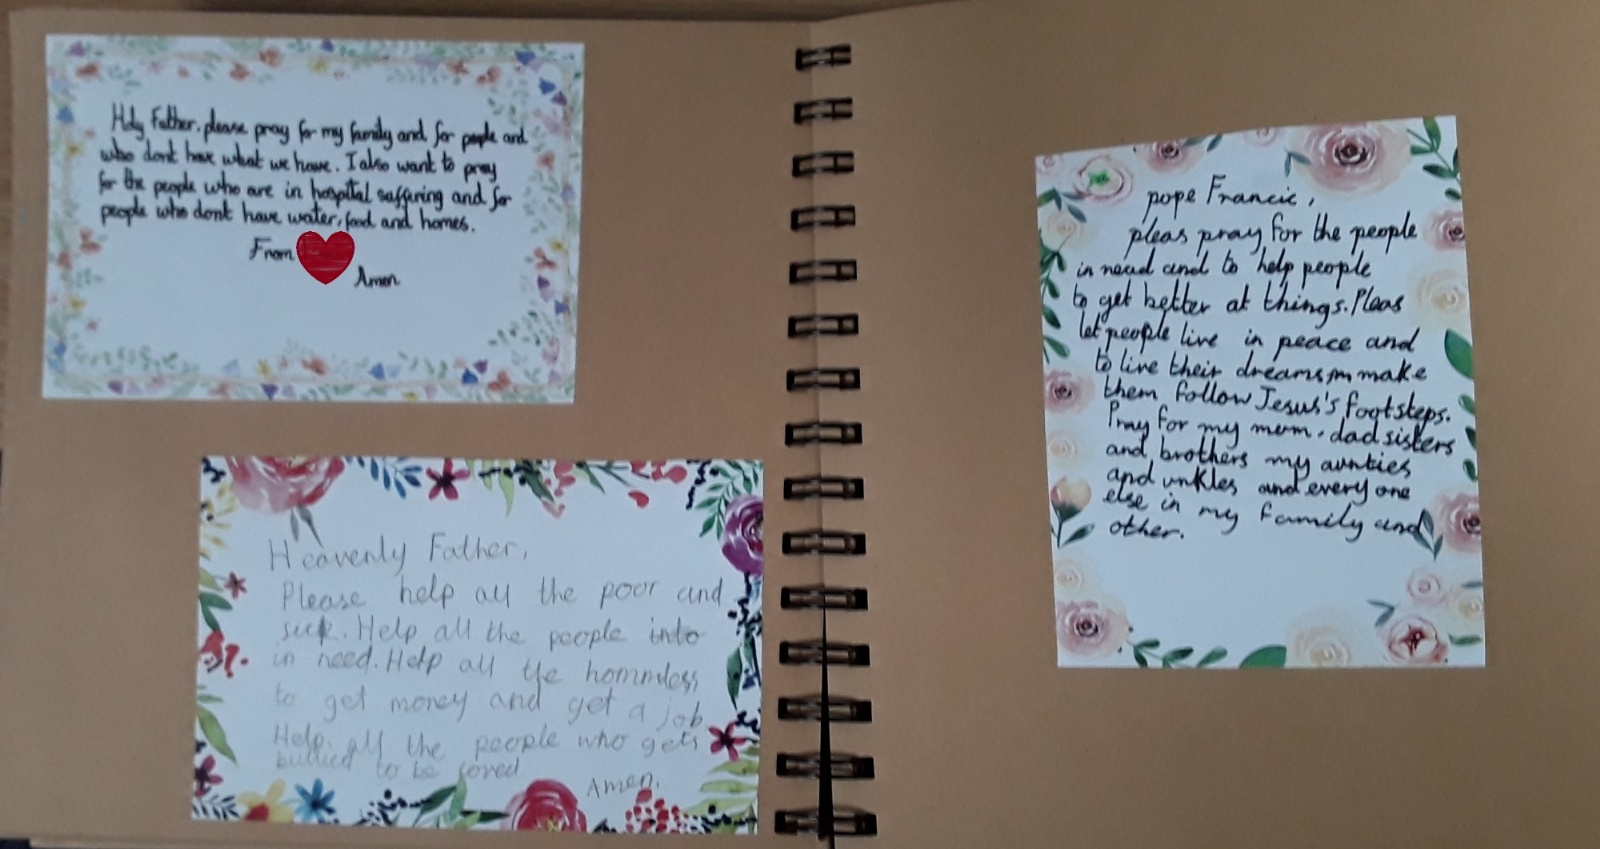 Holy Father, please pray for my family and for people and
who dont have what we have. I also want to pray
for the people who are in hospital saffering and for
people who dont have water, food and homes.
From
Amen
Heavenly Father,
Please help all the poor and
sick. Help all the people into
in need. Help all the hommless
to get money and get a job.
Help. all the people who gets
bullied to be loved
Amen.
pope Francic,
pleas pray for the people
in nead and to help people
to get better at things. Pleas
let people live in peace and
to live their dreams make
them follow Jesus's footsteps.
Pray for my mum, dad sisters
and brothers my aunties
and unkles and every one
else in my family and
other.